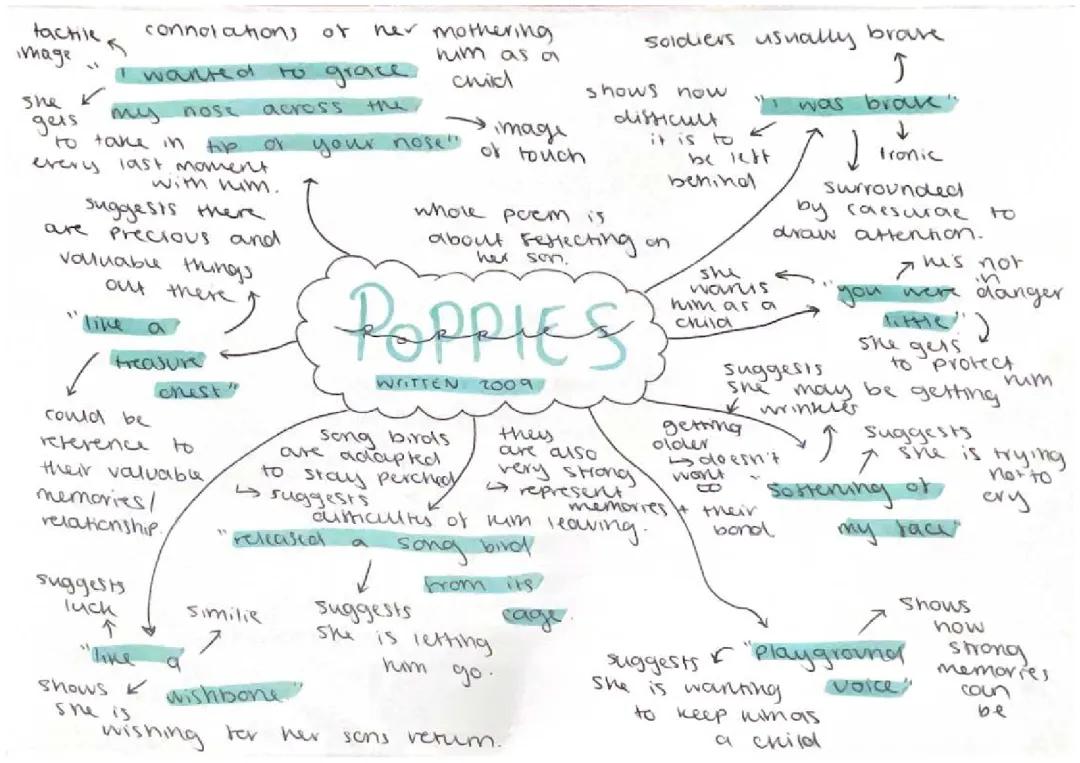 tactile
image
connotations of her mothering
him as a
child
"I wanted to graze
my nose across the
tip of your nose"
she
gets
to take in
every last moment
with him.
image
of touch
soldiers usually brave
"I was brave"
shows how
difficult
it is to
be left
behind
Ironic
surrounded
by caesurae to
draw attention.
whole poem is
about reflecting on
her son.
POPPIES
WRITTEN 2009
suggests there
are precious and
valuable things
out there
"like a
treasure
chest"
could be
reference to
their valuable
memories/
relationship.
she
wants
him as a
child
"you were
little"
he's not
in
danger
she gets
to protect
him
suggests
she may be getting
wrinkles
getting
older
↳ doesn't
want
to
"softening of
my face"
suggests
she is trying
not to
cry
song birds
are adapted
to stay perched
↳ suggests
difficulties of him leaving.
they
are also
very strong
↳ represent
memories + their
bond
"released a song bird
from its
cage.
suggests
she is letting
him go.
suggests
luck
similie
"like a
wishbone"
shows
she is
wishing for her sons return.
"playground
voice"
suggests
she is wanting
to keep him as
a child
shows
how
strong
memories
can
be